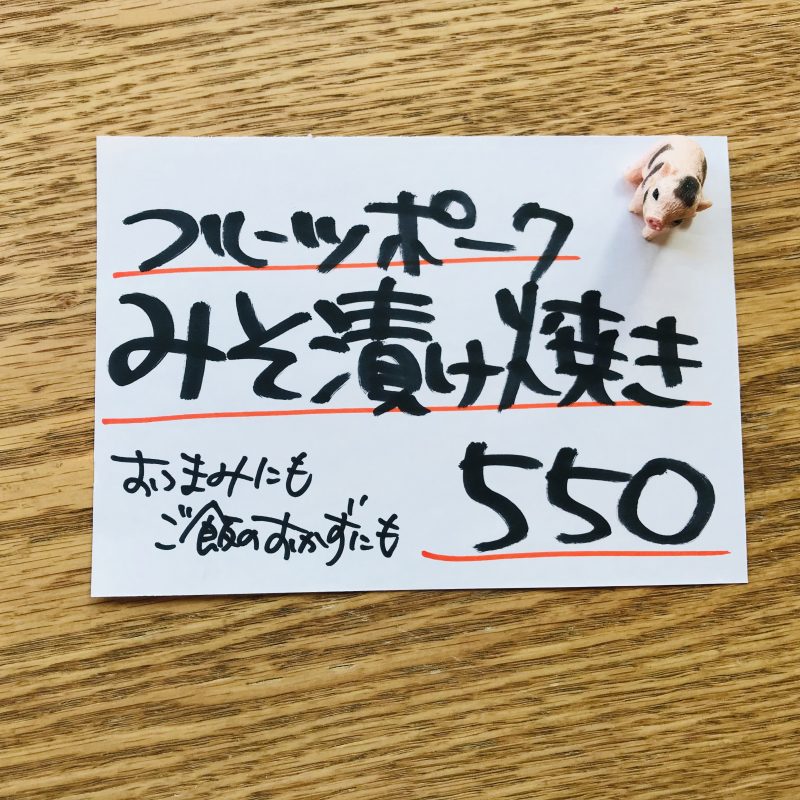 フルーツポーク
みそ漬け焼き
おつまみにも
ご飯のおかずにも
550